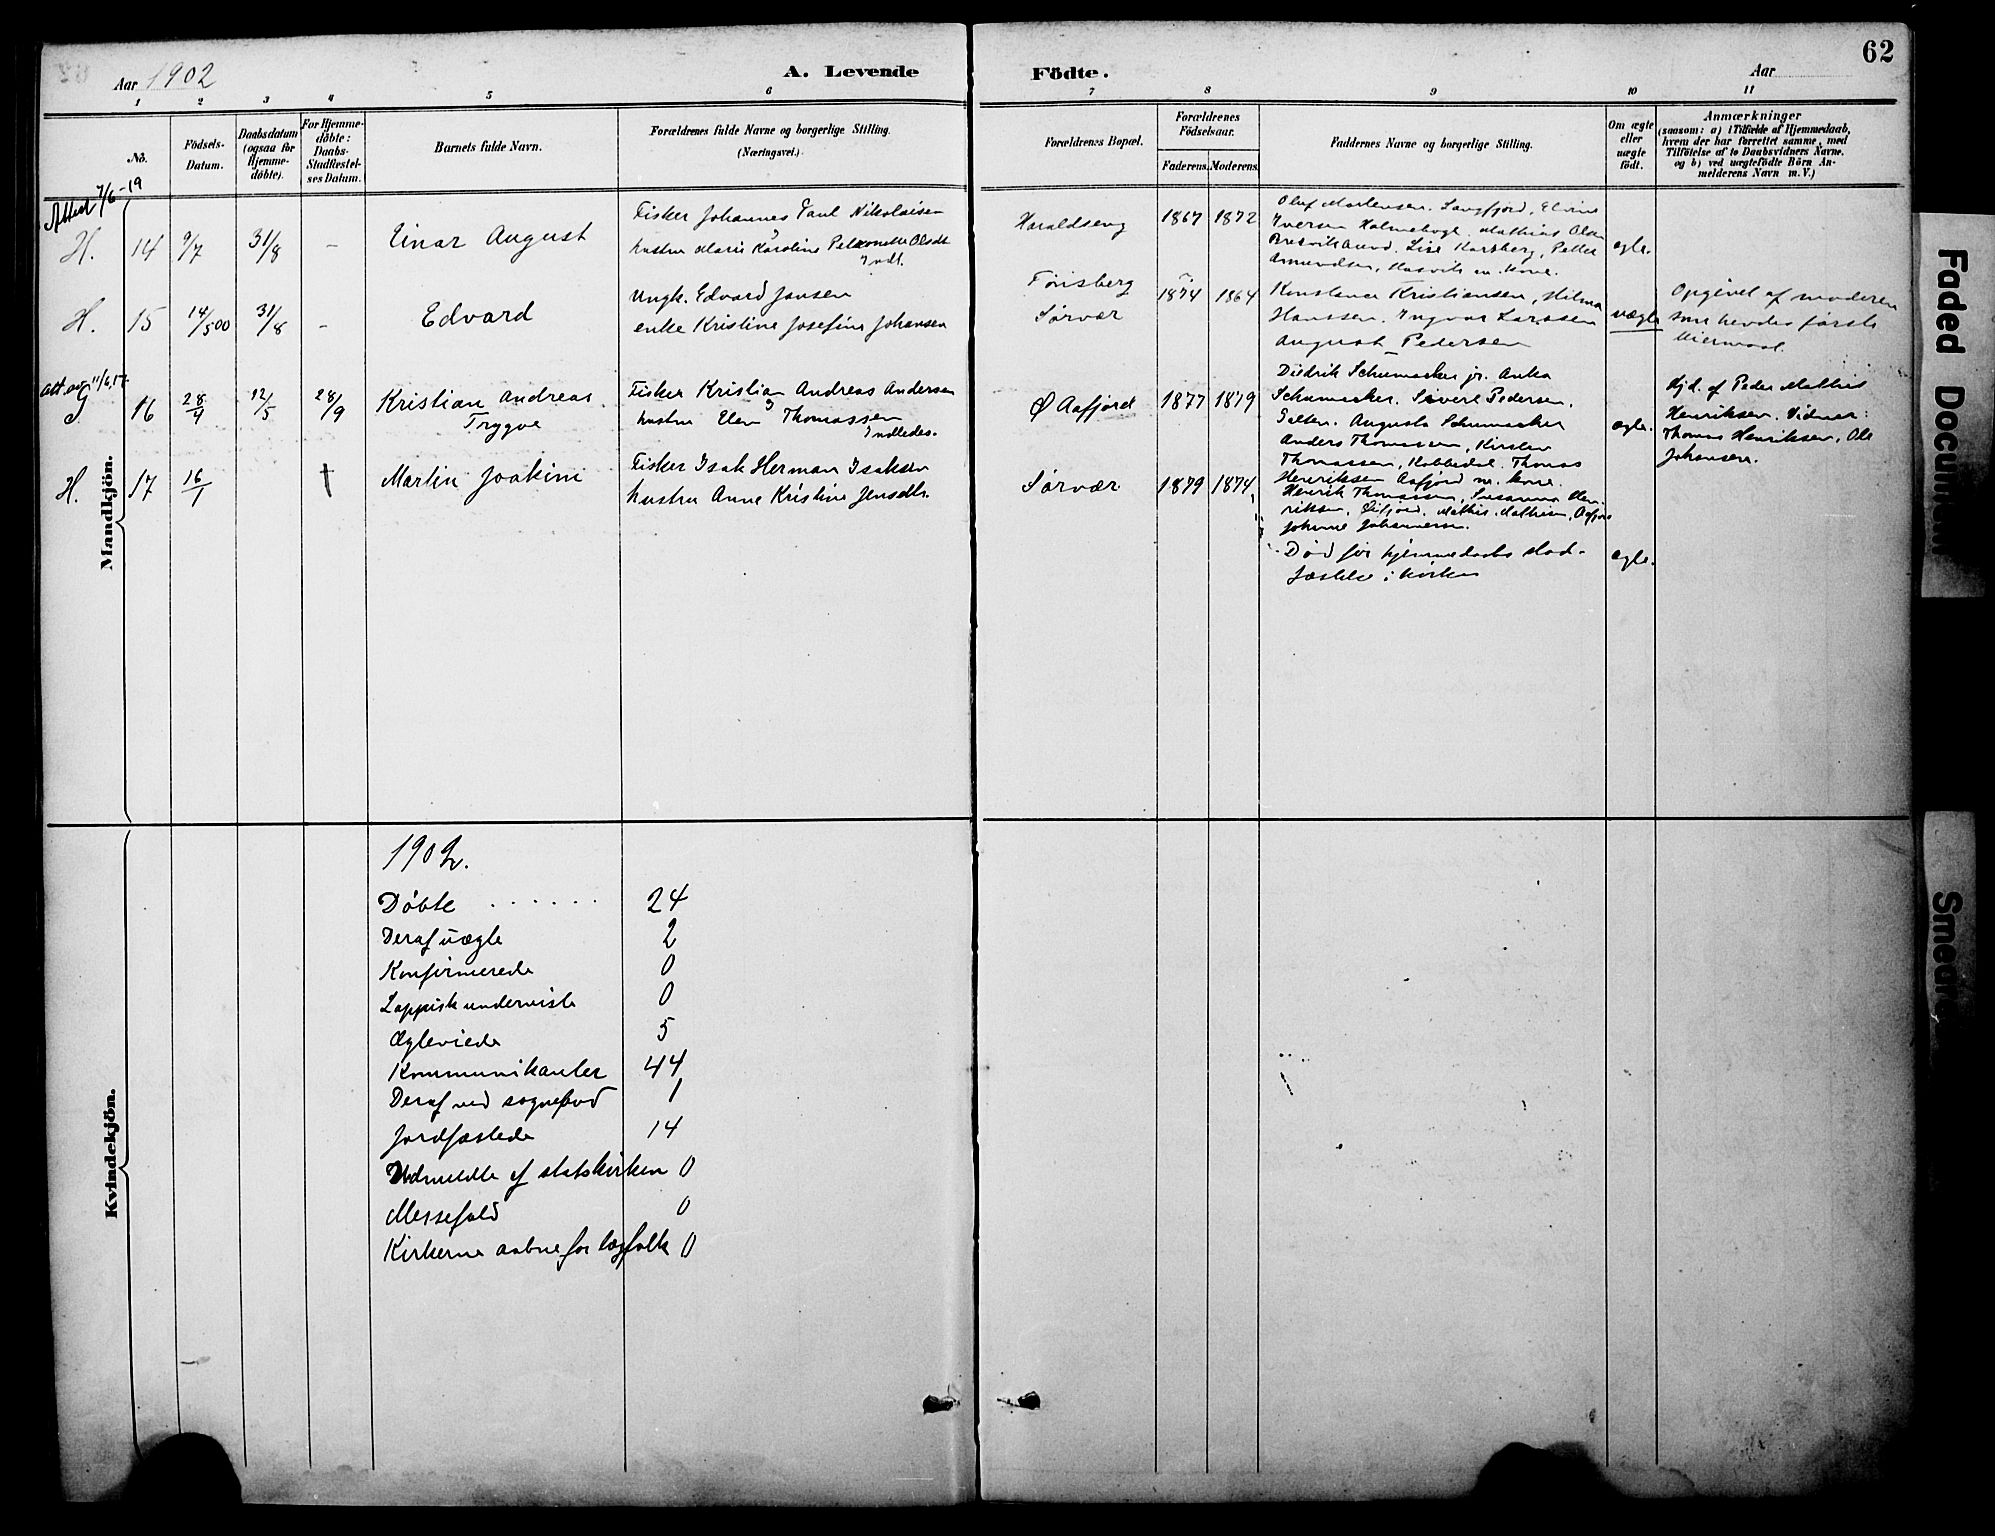 62
Aar 1902
A. Levende
Födte.
Aar
1 2 3 4 5 6 7 8 9 10 11
No.
Födsels-Datum.
Daabsdatum (ogsaa for Hjemme-döbte).
For Hjemme-döbte: Daabs-Stadfæstel-ses Datum.
Barnets fulde Navn.
Forældrenes fulde Navne og borgerlige Stilling.
(Næringsvei.)
Forældrenes Bopæl.
Forældrenes Födselsaar.
Faderens. Moderens.
Faddernes Navne og borgerlige Stilling.
Om ægte eller uægte födt.
Anmærkninger
(saasom: a) i Tilfælde af Hjemmedaab,
hvem der har forrettet samme, med
Tilföielse af to Daabsvidners Navne,
og b) ved uægtefödte Börn An-
melderens Navn m. V.)
Mandkjön.
Attest 7/6-19
H. 14 9/7 31/8 - Einar August
Fisker Johannes Paul Nikolaisen
hustru Marie Karoline Petronelle Olsdt
Indl.
Haraldseng 1867 1872
Oluf Mortensen, Langfjord, Elvine
Iversen Holmebugt, Mathias Olsen
Lise Karlberg, Petter
Amundsen, Hasvik m. kone.
ægte.
H. 15 14/5 00 31/8 - Edvard
Ungk. Edvard Jansen
enke Kristine Josefine Johansen
Sørvær 1874 1864
Konstance Kristiansen, Hilma
Hanssen, Ingvar Larssen
August Pedersen
uægte
Opgivet af moderen
som hendes første
leiermaal.
Att. av 11/6,17.
16 28/4 12/5 28/9 Kristian Andreas
Trygve
Fisker Kristian Andreas Andersen
hustru Elen Thomassen
Indledes.
Ø Aafjord 1877 1879
Diedrik Schumacker jr. Anka
Schumacker, Sivert Pedersen,
Augusta Schumacker
Anders Thomassen, Kirsten
Thomassen, Kobbedal. Thomas
Henriksen Aafjord m. kone.
Henrik Thomassen, Susanna Hen-
riksen, Mathis Mathisen, Aafjord
Johanne Johannessen.
ægte.
Hjd. af Peder Mathis
Henriksen. Vidner:
Thomas Henriksen, Ole
Johansen.
H. 17 16/1 † Martin Joakim
Fisker Isak Herman Isaksen
hustru Anne Kristine Jensdtr.
Sørvær 1879 1874
Død før hjemmedaabs stad-
fæstelse i kirken
ægte.
Kvindekjön.
1902.
Døbte . . . . . . 24
Deraf uægte 2
Konfirmerede 0
Lappisk underviste 0
Ægteviede 5
Kommunikanter 44
Deraf ved sognebud 1
Jordfæstede 14
Udmeldte af statskirken 0
Messefald 0
Kirkerne aabne for lægfolk 0
Faded Document
Smeared